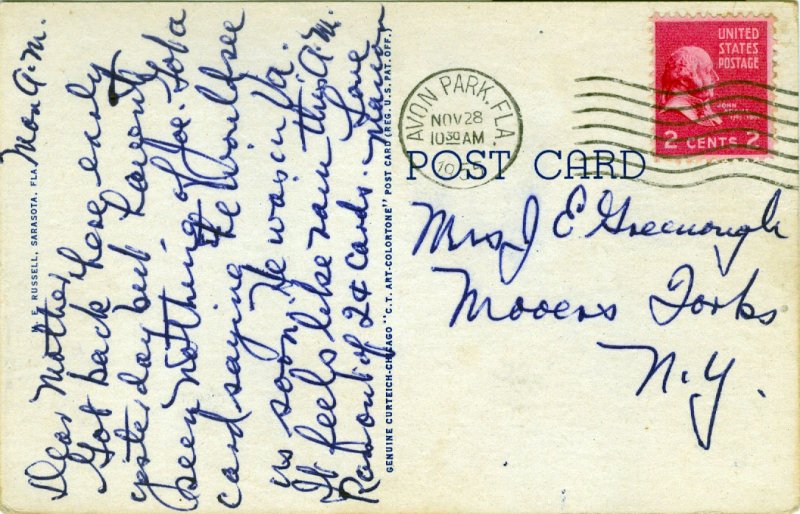 Mon a.m.
Dear Mother,
Got back here early
yesterday but haven't
seen nothing of Joe. Got a
card saying he would see
us soon. He was in Ga.
It feels like rain this A.M.
Ran out of 2¢ cards. Love
Marion
M. E. RUSSELL, SARASOTA, FLA.
GENUINE CURTEICH-CHICAGO "C.T. ART-COLORTONE" POST CARD (REG. U.S. PAT. OFF.)
AVON PARK, FLA.
NOV 28
10 30 AM
UNITED
STATES
POSTAGE
JOHN
2 CENTS 2
POST CARD
Mrs J E Greenough
Mooers Forks
N.Y.